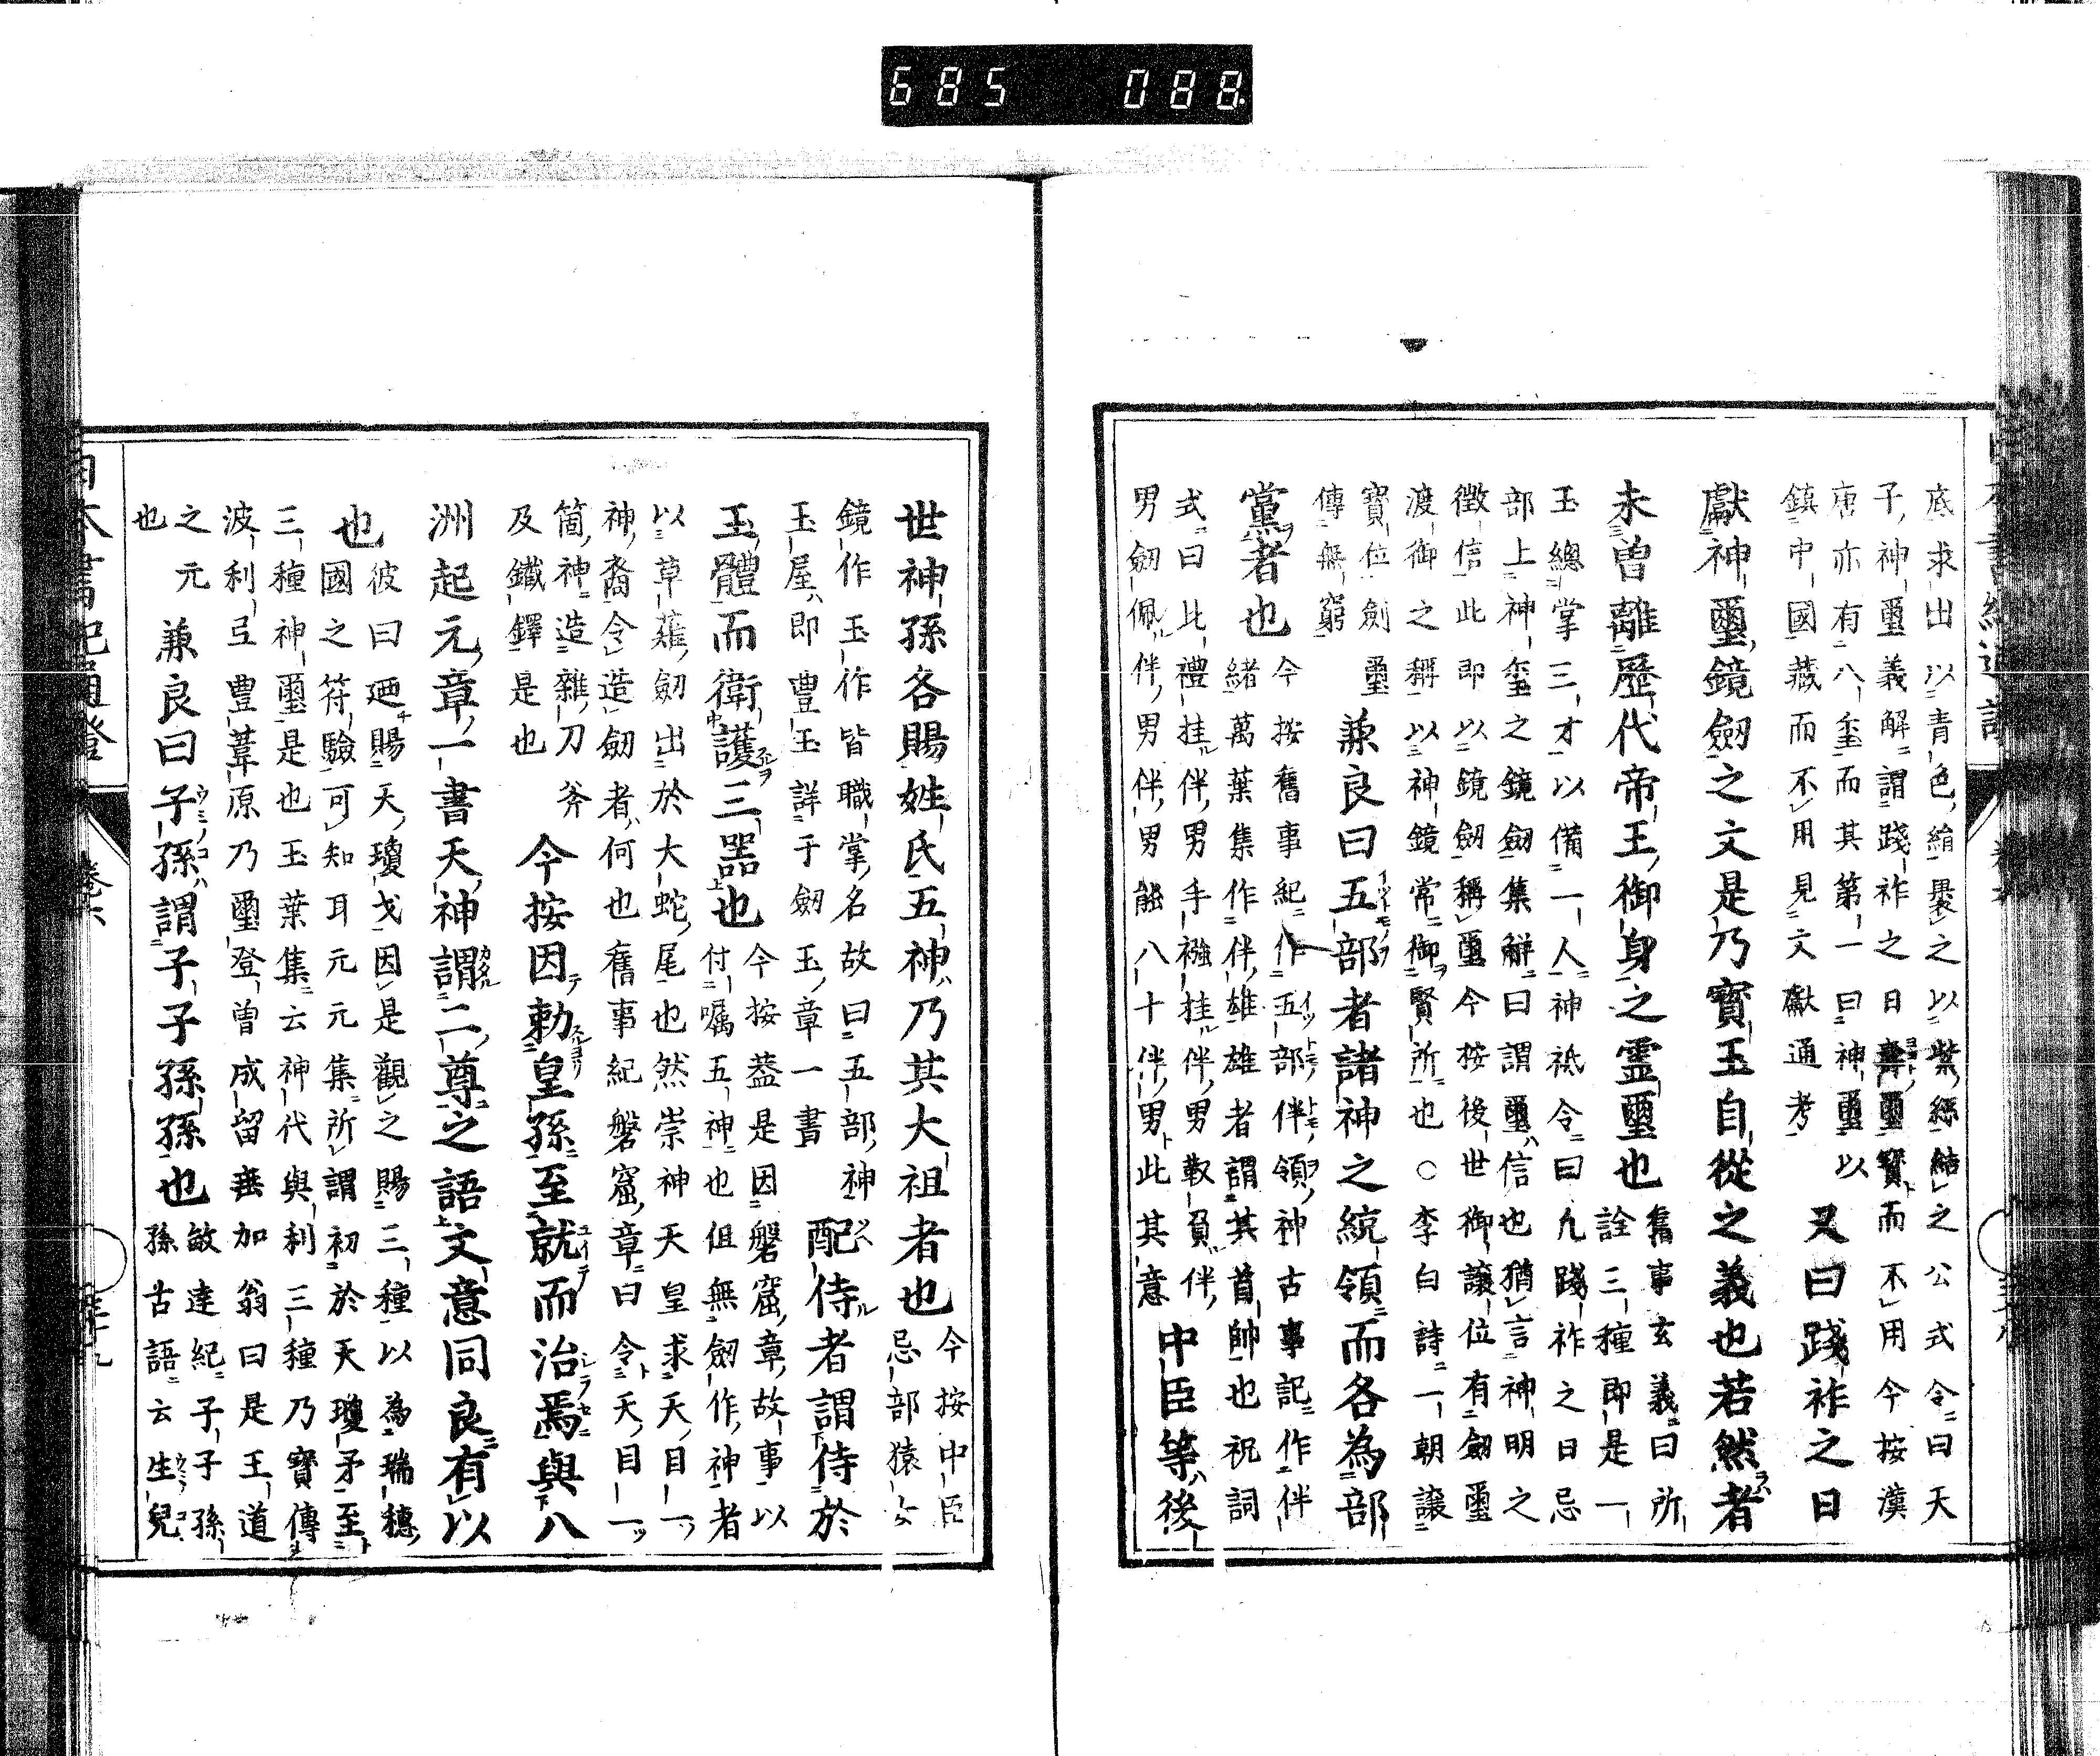 底求出以青色綃褁之以紫絲結之公式令曰天
子神璽義解謂踐祚之日壽璽寶而不用今按漢
唐亦有八璽而其第一曰神璽以
鎮中國藏而不用見文獻通考
又曰踐祚之日
獻神璽鏡劔之文是乃寶玉自從之義也若然者
未曾離歷代帝王御身之霊璽也
舊事玄義曰所
詮三種即是一
玉總掌三才以備一人神祇令曰凡踐祚之日忌
部上神璽之鏡劔集解曰謂璽信也猶言神明之
徴信此即以鏡劔稱璽今按後世御讓位有劔璽
渡御之稱以神鏡常御賢所也○李白詩一朝讓
寶位劍璽
傳無窮
兼良曰五部者諸神之統領而各為部
黨者也
今按舊事紀作五部伴領神古事記作伴
緒萬葉集作伴雄雄者謂其首帥也祝詞
式曰比禮挂伴男手襁挂伴男靫負伴
男劔佩伴男伴男能八十伴男此其意
中臣等後
世神孫各賜姓氏五神乃其大祖者也
今按中臣
忌部猿女
鏡作玉作皆職掌名故曰五部神
玉屋即豊玉詳于劔玉章一書
配侍者謂侍於
玉體而衛護三噐也
今按蓋是因磐窟章故事以
付嘱五神也但無劔作神者
以草薙劔出於大蛇尾也然崇神天皇求天目一
神裔令造劔者何也舊事紀磐窟章曰令天目一
箇神造雜刀斧
及鐵鐸是也
今按因勅皇孫至就而治焉與八
洲起元章一書天神謂二尊之語文意同良有以
也
彼曰廼賜天瓊戈因是觀之賜三種以為瑞穗
國之符驗可知耳元元集所謂初於天瓊矛至
三種神璽是也玉葉集云神代與利三種乃寶傳
波利弖豊葦原乃璽登曾成留垂加翁曰是王道
之元
也
兼良曰子孫謂子子孫孫也
敏達紀子子孫
孫古語云生兒
日本書紀通證 卷六